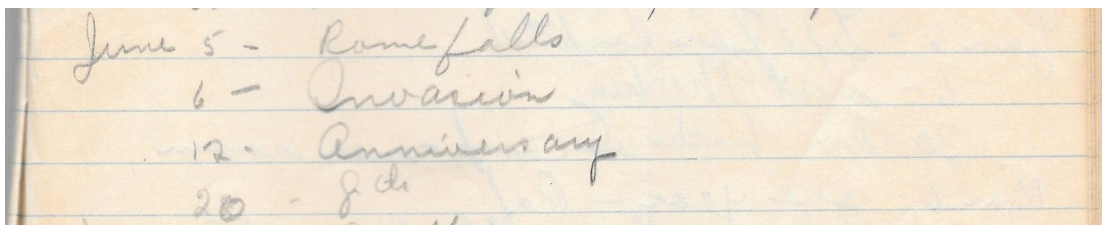 June 5 - Rome falls
6 - Invasion
12 - Anniversary
20 -